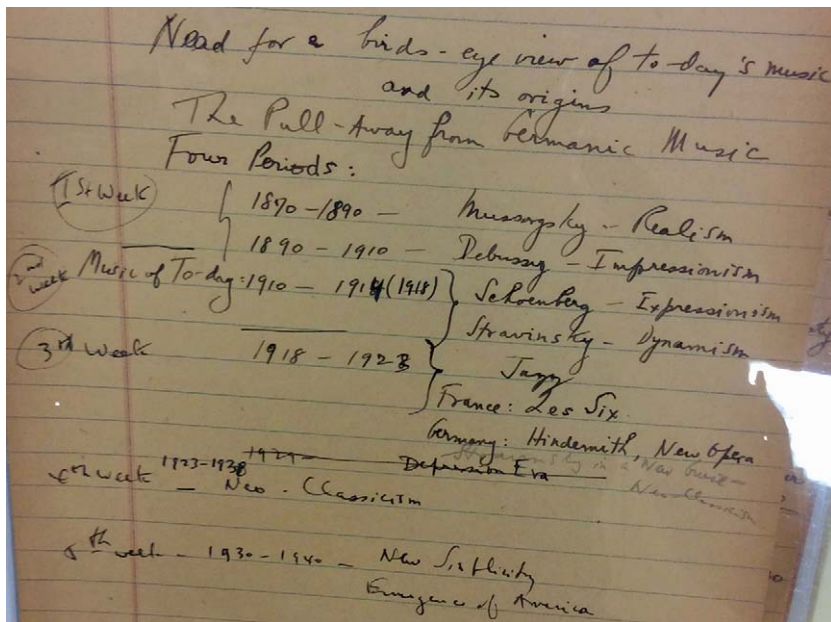 Need for a birds-eye view of to-day's music
and its origins
The Pull-Away from Germanic Music
Four Periods:
1st Week
1870-1890 - Mussorgsky - Realism
1890-1910 - Debussy - Impressionism
2nd week Music of To-day: 1910 - 1914 (1918) Schoenberg - Expressionism
Stravinsky - Dynamism
3th Week 1918 - 1923 Jazz
France: Les Six
Germany: Hindemith, New Opera
Stravinsky in a New Guise -
1929 - Depression Era Neo-Classicism
4th week 1923-1938
- Neo-Classicism
5th week - 1930-1940 - New Simplicity
Emergence of America